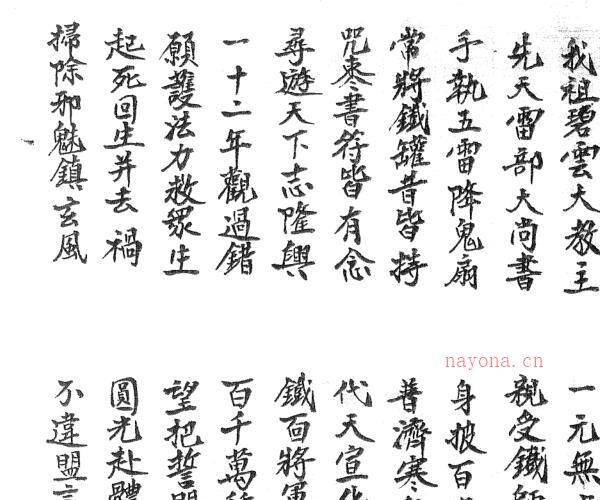 我祖碧雲大教主
先天雷部大尚書
手執五雷降鬼扇
常將鐵罐昔皆持
咒棗書符皆有念
尋遊天下志隆興
一十二年觀過錯
願護法力救眾生
起死回生并去禍
掃除邪魅鎮玄風
一元無
親受鐵
身披百
普濟寒
代天宣化
鐵面將軍
百千萬
望把誓
圓光赴體
不違盟言
nayona.cn